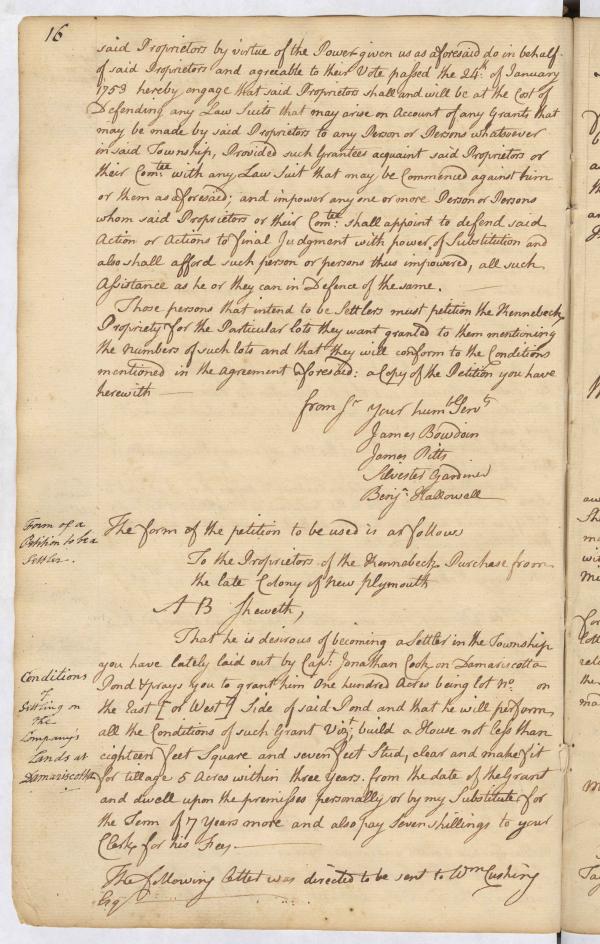 16
said Proprietors by virtue of the Power given us as aforesaid do in behalf
of said Proprietors and agreeable to their Vote passed the 24th. of January
1753 hereby engage that said Proprietors shall and will be at the Cost of
Defending any Law Suits that may arise on Account of any Grants that
may be made by said Proprietors to any Person or Persons whatsoever
in said Township, Provided such Grantees acquaint said Proprietors or
their Comtee. with any Law Suit that may be Commenced against him
or them as aforesaid; and impower any one or more Person or Persons
whom said Proprietors or their Comtee. shall appoint to defend said
Action or Actions to final Judgment with power of Substitution and
also shall afford such person or persons thus impowered, all such
Assistance as he or they can in Defence of the same.
Those persons that intend to be Settlers must petition the Kennebeck
Propriety for the Particular lots they want granted to them mentioning
the numbers of such lots and that they will conform to the Conditions
mentioned in the agreement aforesaid: a Copy of the Petition you have
herewith —
from Sr. your humble Servts
James Bowdoin
James Pitts
Silvester Gardiner
Benjn. Hallowell
Form of a
Petition to be a
Settler.
The form of the petition to be used is as follows
To the Proprietors of the Kennebeck Purchase from
the late Colony of New Plymouth
A B Sheweth,
That he is desirous of becoming a Settler in the Township
you have lately laid out by Capt. Jonathan Cook on Damariscotta
Pond & prays you to grant him One hundred Acres being lot no. on
the East [or West] Side of said Pond and that he will perform
all the Conditions of such Grant Vizt. build a House not less than
eighteen feet Square and seven feet Stud, clear and make fit
for tillage 5 Acres within three years from the date of the Grant
and dwell upon the premisses personally or by my Substitute for
the Term of 7 Years more and also pay Seven shillings to your
Clerk for his Fees.
Conditions
of
Settling on
the
Company's
Lands at
Damariscotta
The following letter was directed to be sent to Wm Cushing
Esqr